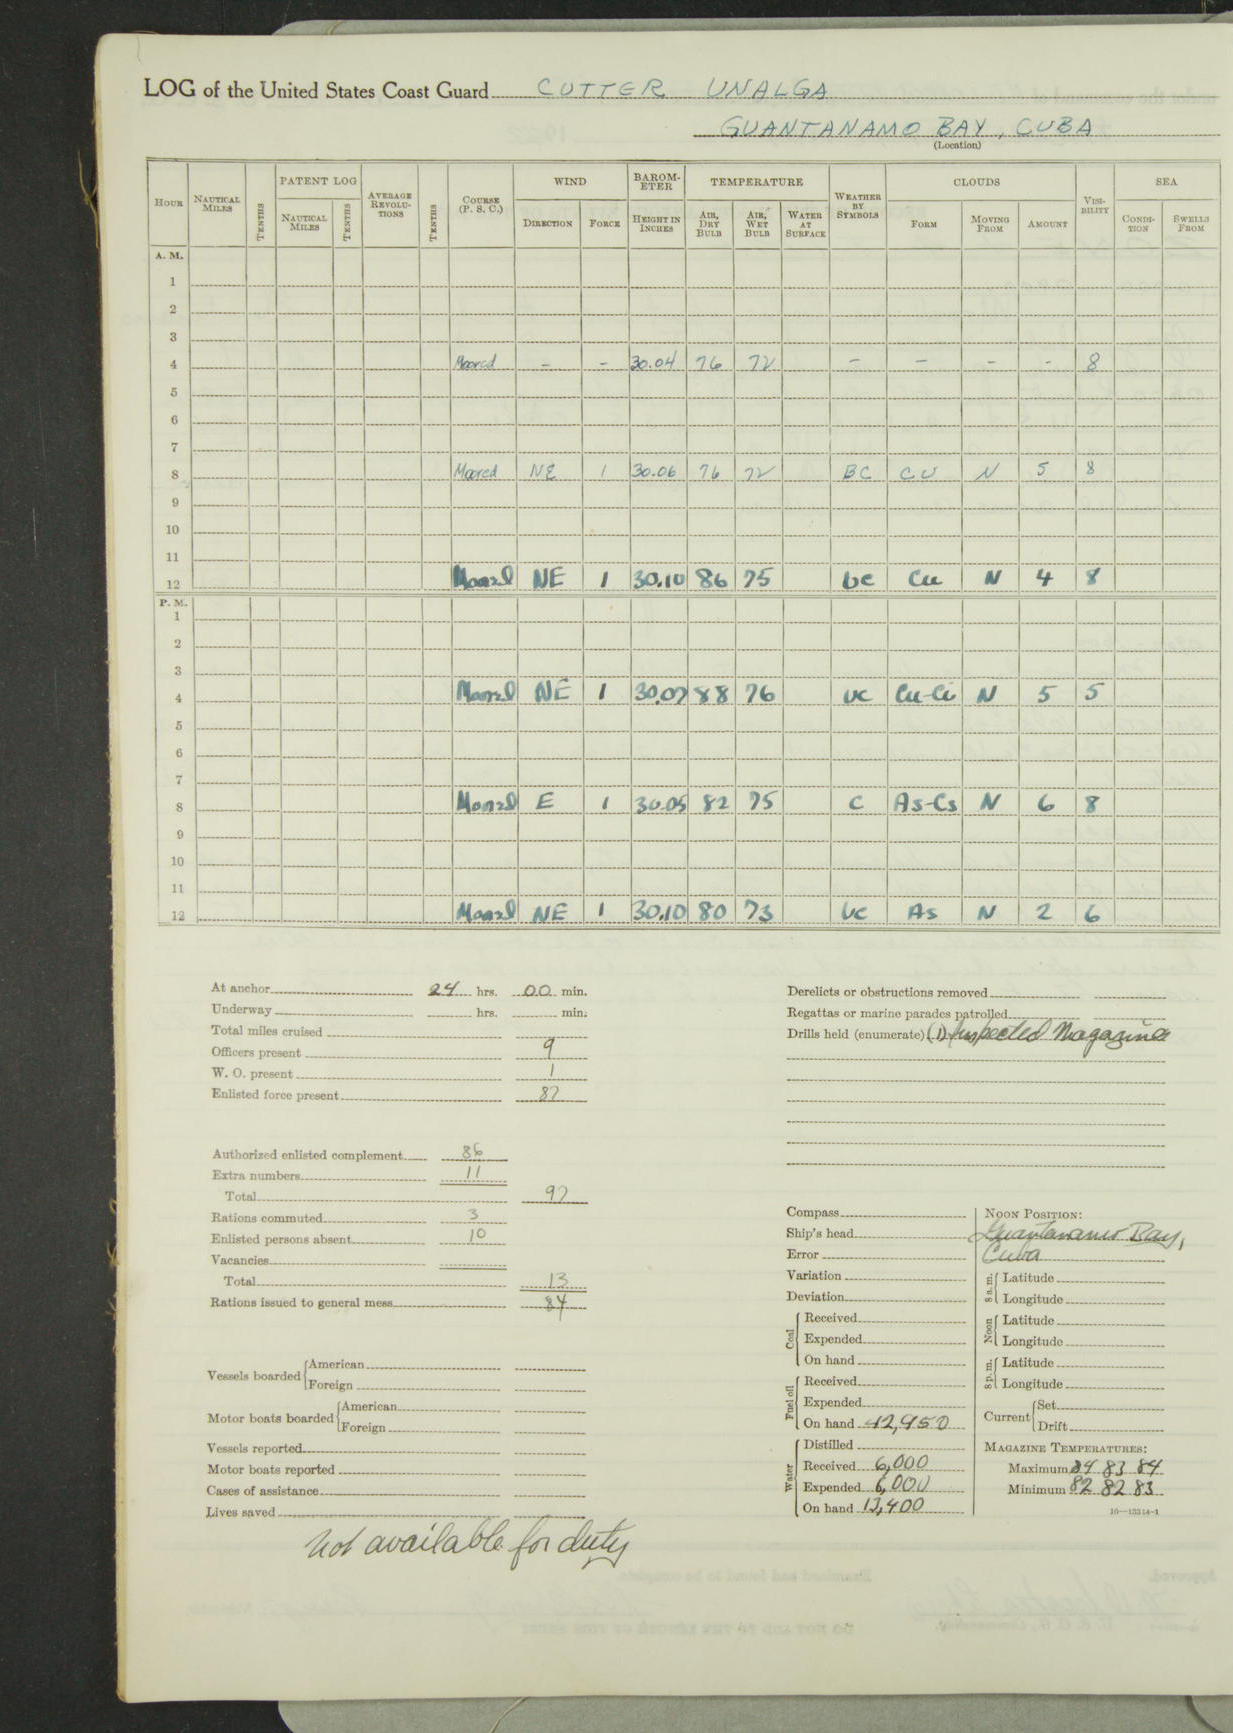 LOG of the United States Coast Guard CUTTER UNALGA
GUANTANAMO BAY, CUBA
(Location)
HOUR NAUTICAL MILES TENTHS PATENT LOG NAUTICAL MILES TENTHS AVERAGE REVOLU-TIONS TENTHS COURSE (P. S. C.) WIND DIRECTION FORCE BAROM-ETER HEIGHT IN INCHES TEMPERATURE AIR, DRY BULB AIR, WET BULB WATER AT SURFACE WEATHER BY SYMBOLS CLOUDS FORM MOVING FROM AMOUNT VISI-BILITY SEA CONDI-TION SWELLS FROM
A. M.
1
2
3
4 Moored - - 30.04 76 72 - - - - 8
5
6
7
8 Moored NE 1 30.06 76 72 BC CU N 5 8
9
10
11
12 Moored NE 1 30.10 86 75 bc Cu N 4 8
P. M.
1
2
3
4 Moored NE 1 30.07 88 76 bc Cu-Ci N 5 5
5
6
7
8 Moored E 1 30.05 82 75 C As-Cs N 6 8
9
10
11
12 Moored NE 1 30.10 80 73 bc As N 2 6
At anchor 24 hrs. 00 min.
Underway hrs. min.
Total miles cruised
Officers present 9
W. O. present 1
Enlisted force present 87
Authorized enlisted complement 86
Extra numbers 11
Total 97
Rations commuted 3
Enlisted persons absent 10
Vacancies
Total 13
Rations issued to general mess 84
Vessels boarded American
Foreign
Motor boats boarded American
Foreign
Vessels reported
Motor boats reported
Cases of assistance
Lives saved
Not available for duty
Derelicts or obstructions removed
Regattas or marine parades patrolled
Drills held (enumerate) (1) Inspected Magazines
Compass
Ship's head
Error
Variation
Deviation
Coal Received
Expended
On hand
Fuel oil Received
Expended
On hand 42,950
Water Distilled
Received 6,000
Expended 6,000
On hand 13,400
NOON POSITION:
Guantanamo Bay,
Cuba
8 a. m. Latitude
Longitude
Noon Latitude
Longitude
8 p. m. Latitude
Longitude
Current Set
Drift
MAGAZINE TEMPERATURES:
Maximum 84 83 84
Minimum 82 82 83
16—13314-1